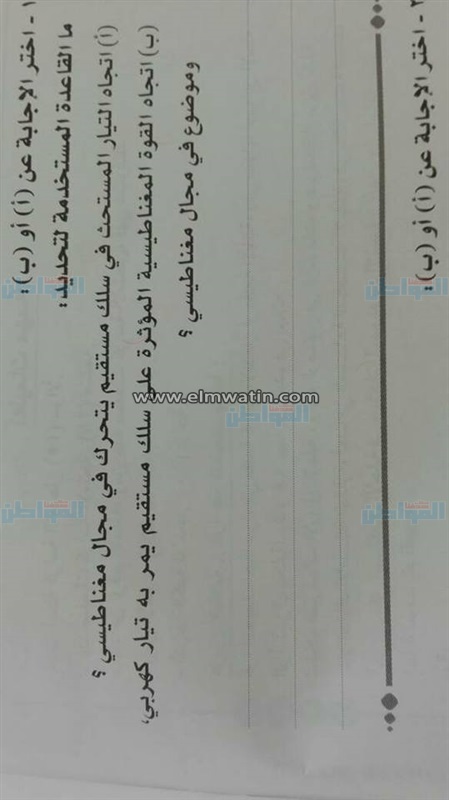 ١ - اختر الإجابة عن (أ) أو (ب) :
ما القاعدة المستخدمة لتحديد :
(أ) اتجاه التيار المستحث في سلك مستقيم يتحرك في مجال مغناطيسي ؟
(ب) اتجاه القوة المغناطيسية المؤثرة على سلك مستقيم يمر به تيار كهربي،
وموضوع في مجال مغناطيسي ؟
٢ - اختر الإجابة عن (أ) أو (ب) :
www.elmwatin.com
المواطن
المواطن
المواطن
المواطن
المواطن
المواطن